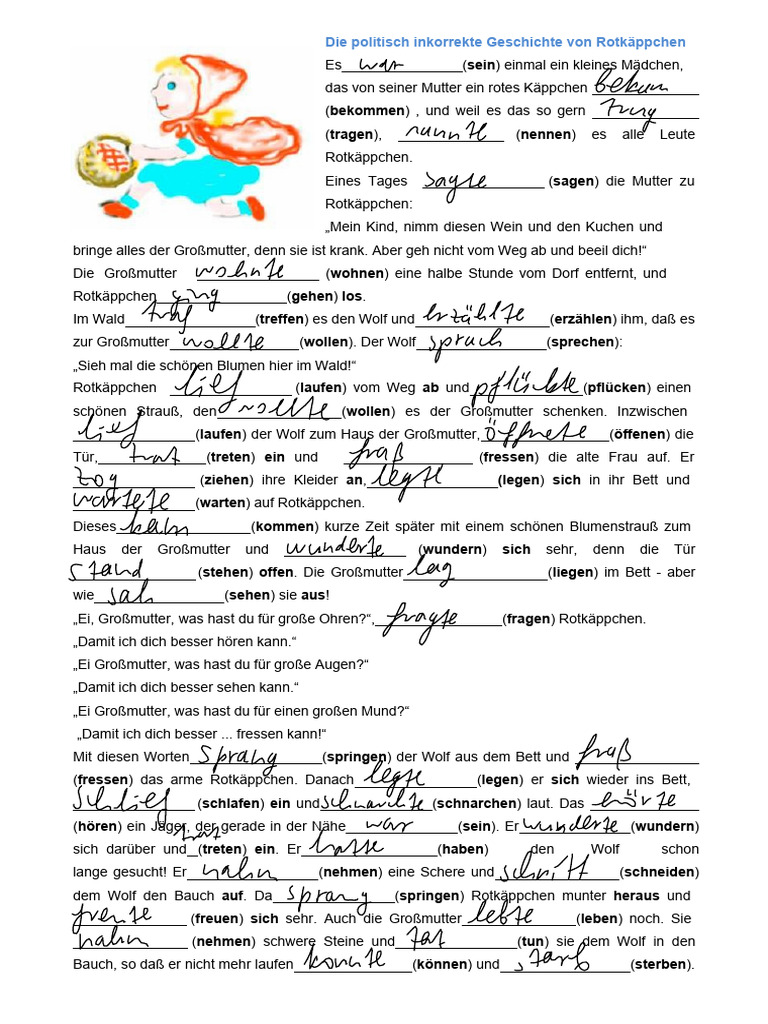 Die politisch inkorrekte Geschichte von Rotkäppchen
Es war (sein) einmal ein kleines Mädchen,
das von seiner Mutter ein rotes Käppchen bekam
(bekommen) , und weil es das so gern trug
(tragen), nannte (nennen) es alle Leute
Rotkäppchen.
Eines Tages sagte (sagen) die Mutter zu
Rotkäppchen:
„Mein Kind, nimm diesen Wein und den Kuchen und
bringe alles der Großmutter, denn sie ist krank. Aber geh nicht vom Weg ab und beeil dich!“
Die Großmutter wohnte (wohnen) eine halbe Stunde vom Dorf entfernt, und
Rotkäppchen ging (gehen) los.
Im Wald traf (treffen) es den Wolf und erzählte (erzählen) ihm, daß es
zur Großmutter wollte (wollen). Der Wolf sprach (sprechen):
„Sieh mal die schönen Blumen hier im Wald!“
Rotkäppchen lief (laufen) vom Weg ab und pflückte (pflücken) einen
schönen Strauß, den wollte (wollen) es der Großmutter schenken. Inzwischen
lief (laufen) der Wolf zum Haus der Großmutter, öffnete (öffenen) die
Tür, trat (treten) ein und fraß (fressen) die alte Frau auf. Er
zog (ziehen) ihre Kleider an, legte (legen) sich in ihr Bett und
wartete (warten) auf Rotkäppchen.
Dieses kam (kommen) kurze Zeit später mit einem schönen Blumenstrauß zum
Haus der Großmutter und wunderte (wundern) sich sehr, denn die Tür
stand (stehen) offen. Die Großmutter lag (liegen) im Bett - aber
wie sah (sehen) sie aus!
„Ei, Großmutter, was hast du für große Ohren?“, fragte (fragen) Rotkäppchen.
„Damit ich dich besser hören kann.“
„Ei Großmutter, was hast du für große Augen?“
„Damit ich dich besser sehen kann.“
„Ei Großmutter, was hast du für einen großen Mund?“
„Damit ich dich besser ... fressen kann!“
Mit diesen Worten sprang (springen) der Wolf aus dem Bett und fraß
(fressen) das arme Rotkäppchen. Danach legte (legen) er sich wieder ins Bett,
schlief (schlafen) ein und schnarchte (schnarchen) laut. Das hörte
(hören) ein Jäger, der gerade in der Nähe war (sein). Er wunderte (wundern)
sich darüber und trat (treten) ein. Er hatte (haben) den Wolf schon
lange gesucht! Er nahm (nehmen) eine Schere und schnitt (schneiden)
dem Wolf den Bauch auf. Da sprang (springen) Rotkäppchen munter heraus und
freute (freuen) sich sehr. Auch die Großmutter lebte (leben) noch. Sie
nahm (nehmen) schwere Steine und tat (tun) sie dem Wolf in den
Bauch, so daß er nicht mehr laufen konnte (können) und starb (sterben).